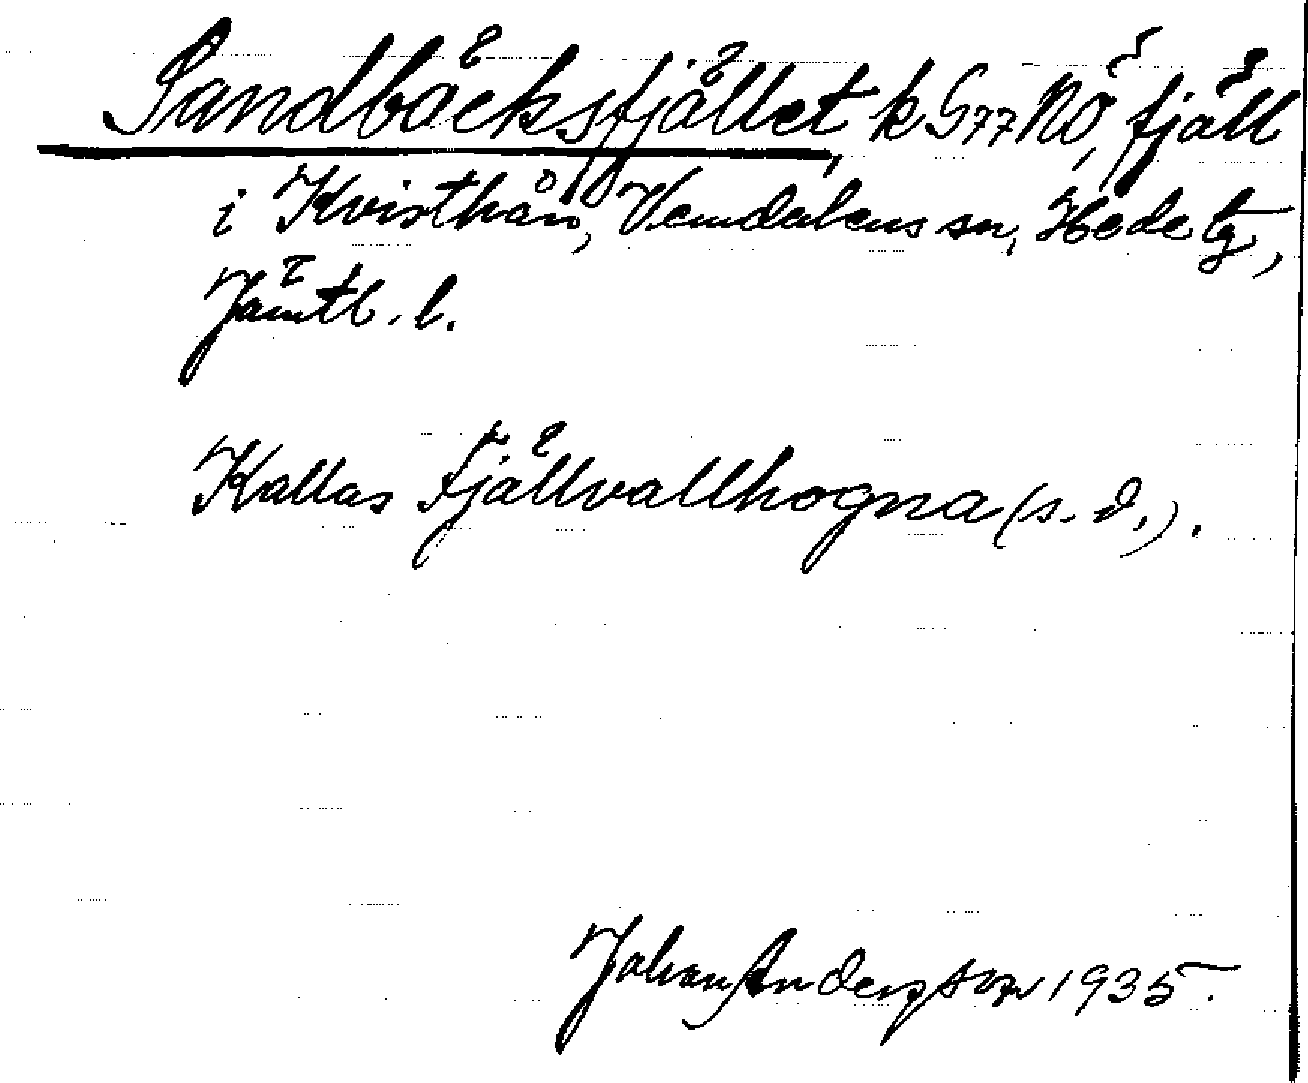 Sandbäcksfjället, k G77 NÖ, fjäll
i Kvisthån, Vemdalens sn, Hede tg,
Jämtl. l.
Kallas Fjällvallhogna (s. d.).
Johan Andersson 1935.